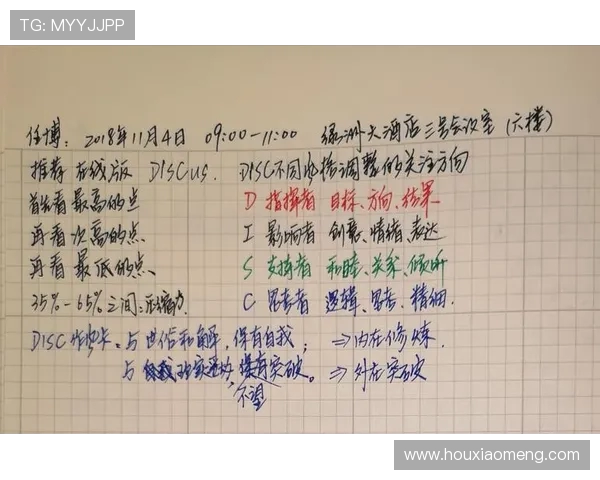 TG: MYYJJPP
任博: 2018年11月4日 09:00-11:00 绿洲大酒店三号会议室 (六楼)
推荐 在线版 DISCUS. DISC不同风格调整的关注方向
首先看最高的点 D 指挥者 目标、方向、结果
再看次高的点、 I 影响者 创意、情绪、表达
再看最低的点、 S 支持者 和睦、关系、倾听
35%-65%之间: 压缩 C 思考者 逻辑、思考、精细.
DISC 与世俗和解, 保有自我; ⇒内在修炼.
与 突破。 ⇒外在突破
不望
www.houxiaomeng.com